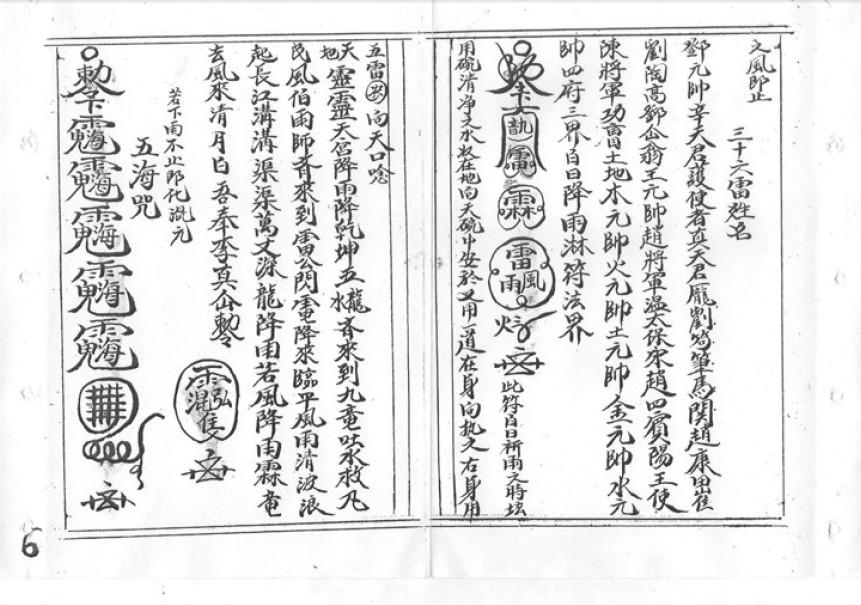 文風即止
三十六雷姓名
鄧元帥辛天君護使者真天君龐劉荀筆馬関趙康田崔
劉陶高鄧公翁王元帥趙將軍溫太保朱趙四賓陽王使
陳將軍功曹土地木元帥火元帥土元帥金元帥水元
帥四府三界白日降雨淋符法界
雷 霖 雷風雨
此符白日祈雨之時坛
用碗清凈之水放在地向天碗中安於又用一道在身向执之右身用
五雷 向天口唸
天地靈靈天宫降雨降乾坤五龍水齊來到九竜吐水救凡
民風伯雨師齊來到雷公閃電降來臨平風雨清波浪
起長江溝溝渠渠萬丈深龍降雨若風降雨霖竜
去風來清月白吾奉李真仙勅令
若下雨不止即化混元
五海咒
勅令
6